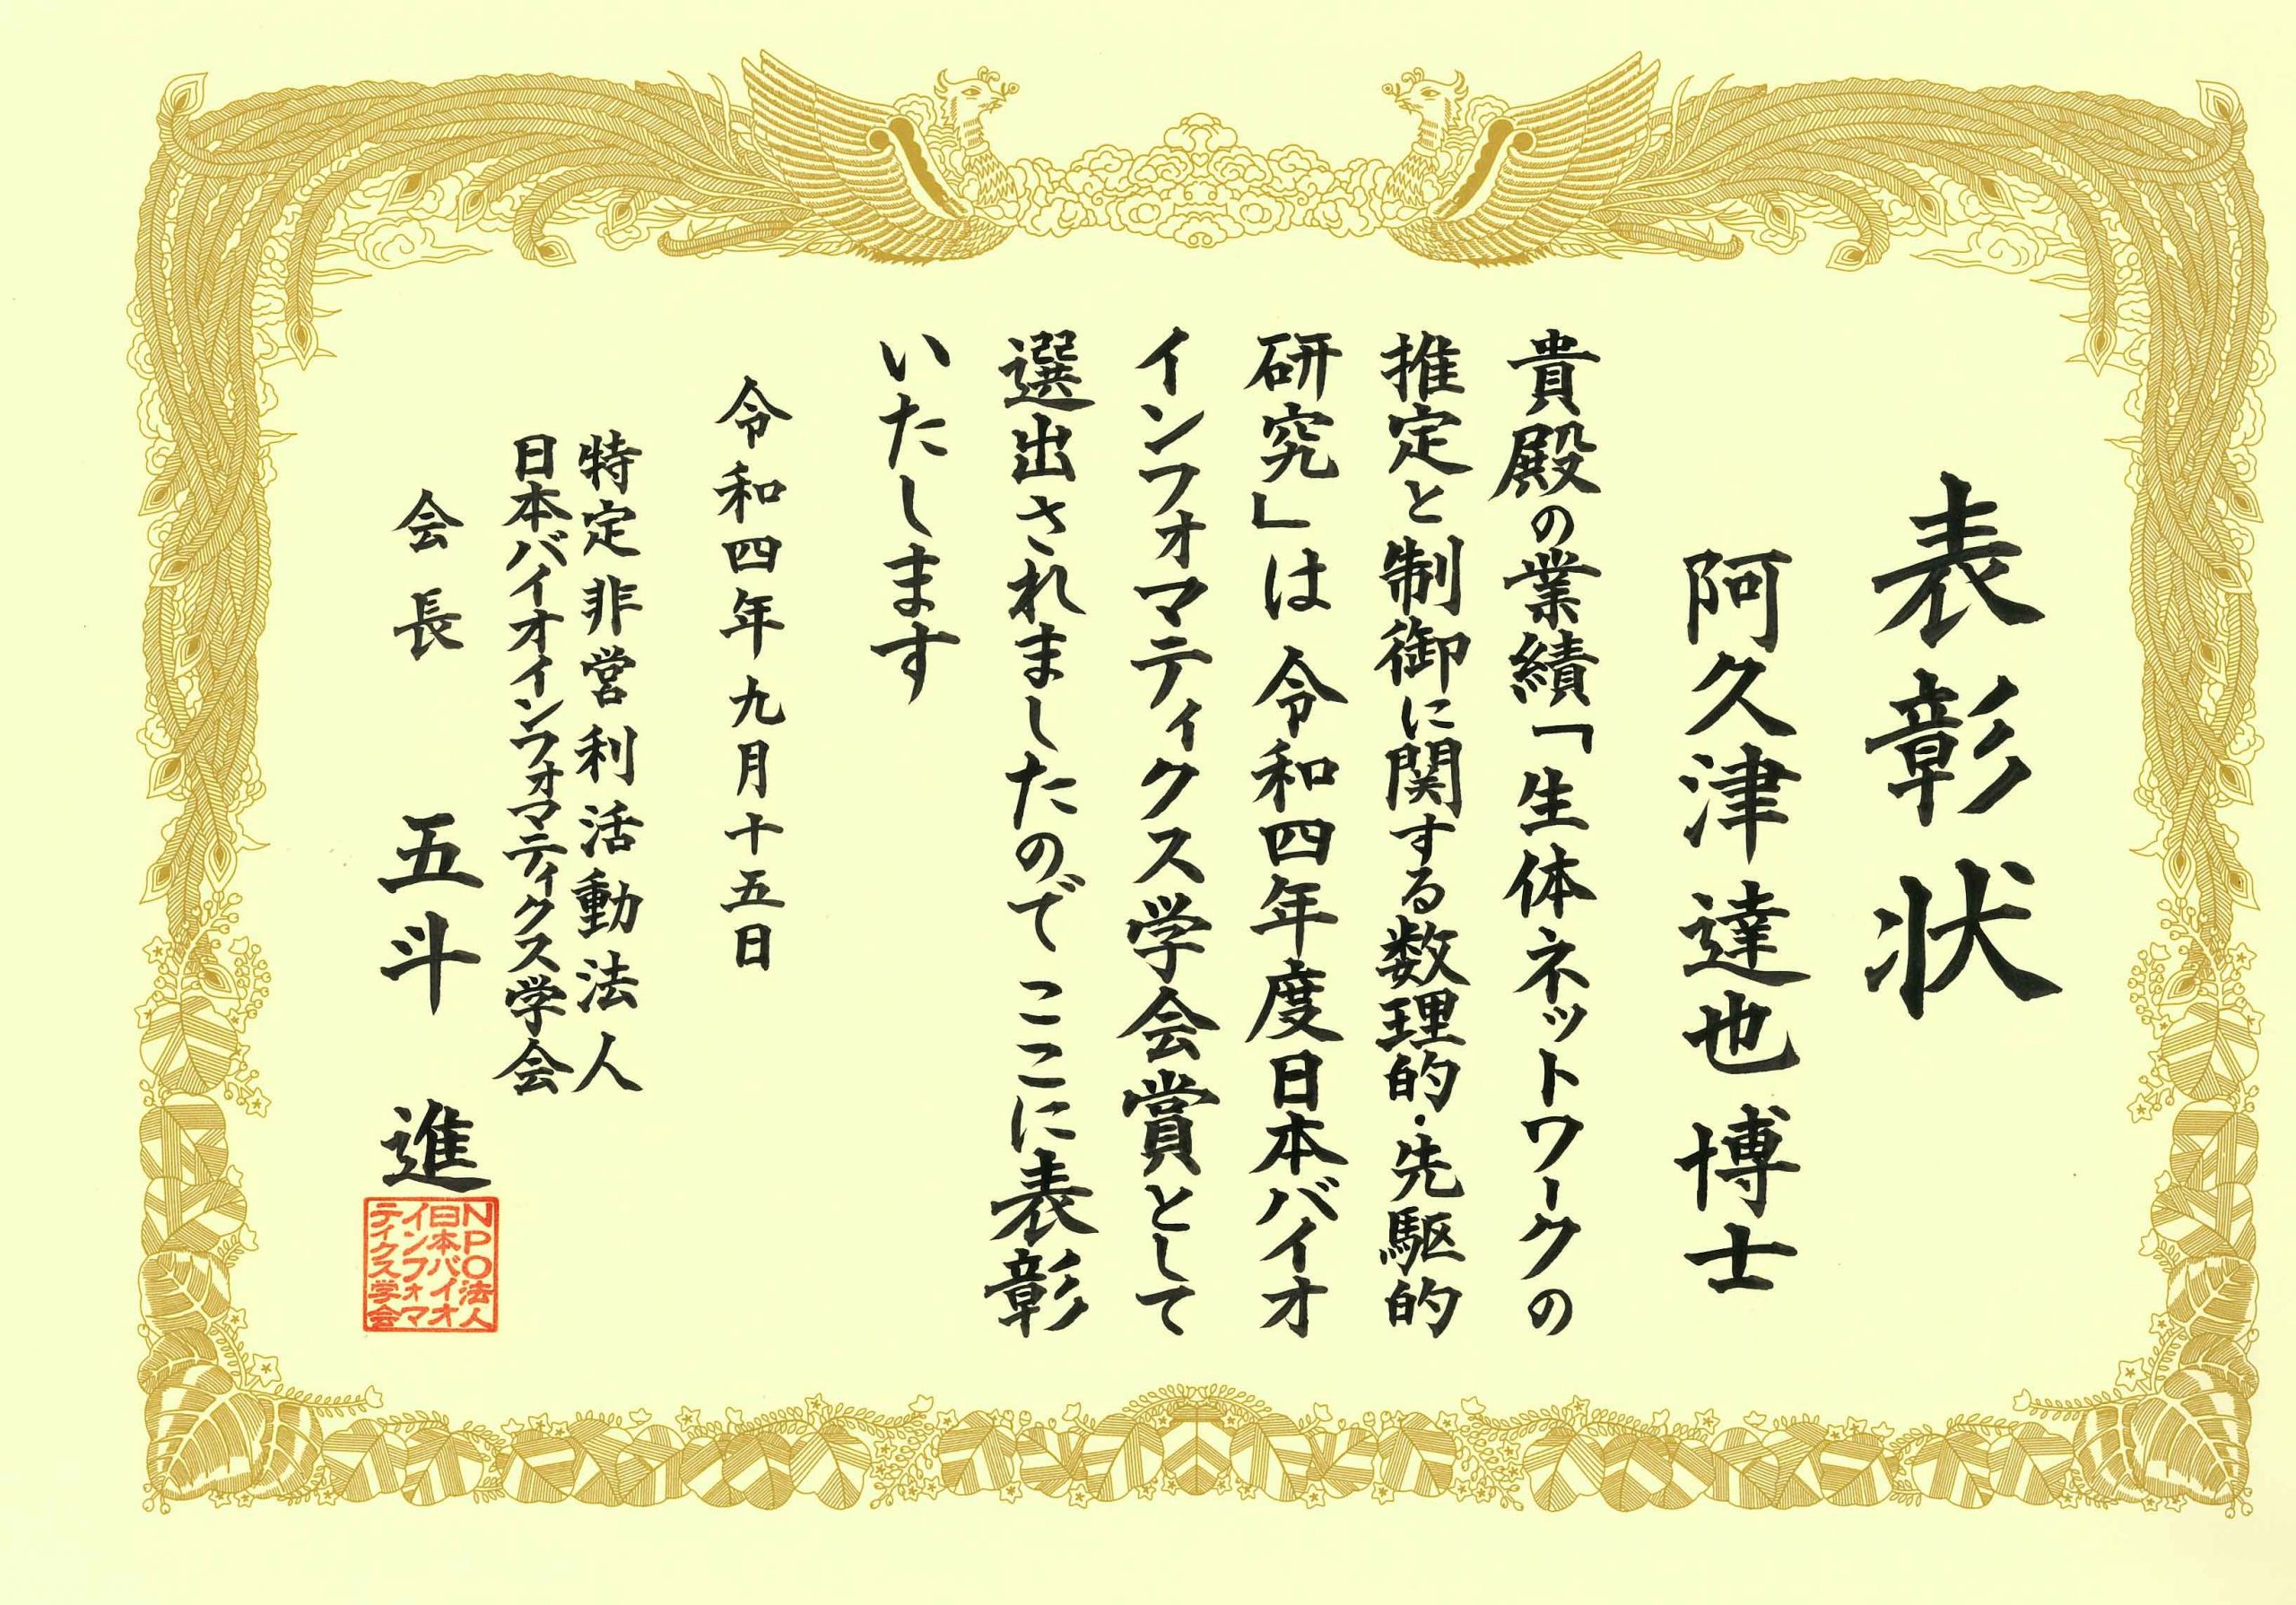 表彰状
阿久津達也博士
貴殿の業績「生体ネットワークの
推定と制御に関する数理的・先駆的
研究」は 令和四年度日本バイオ
インフォマティクス学会賞として
選出されましたので ここに表彰
いたします
令和四年九月十五日
特定非営利活動法人
日本バイオインフォマティクス学会
会長 五斗 進
NPO法人
日本バイオ
インフォマ
ティクス学会